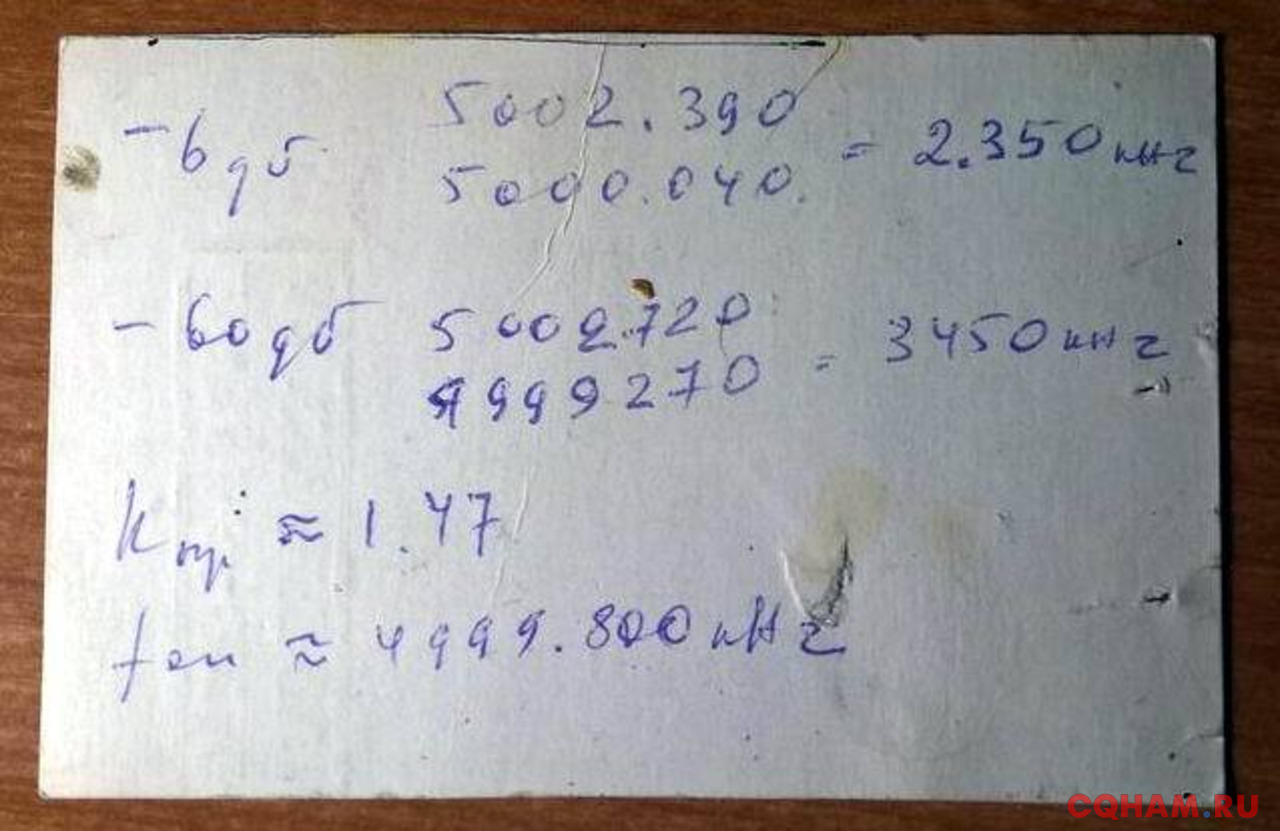 -6дб 5002.390
5000.040. = 2.350 кнz
-60дб 5002.720
4999270 = 3450 кнz
Кпр ≈ 1.47
fоп ≈ 4999.800 кHz
CQHAM.RU